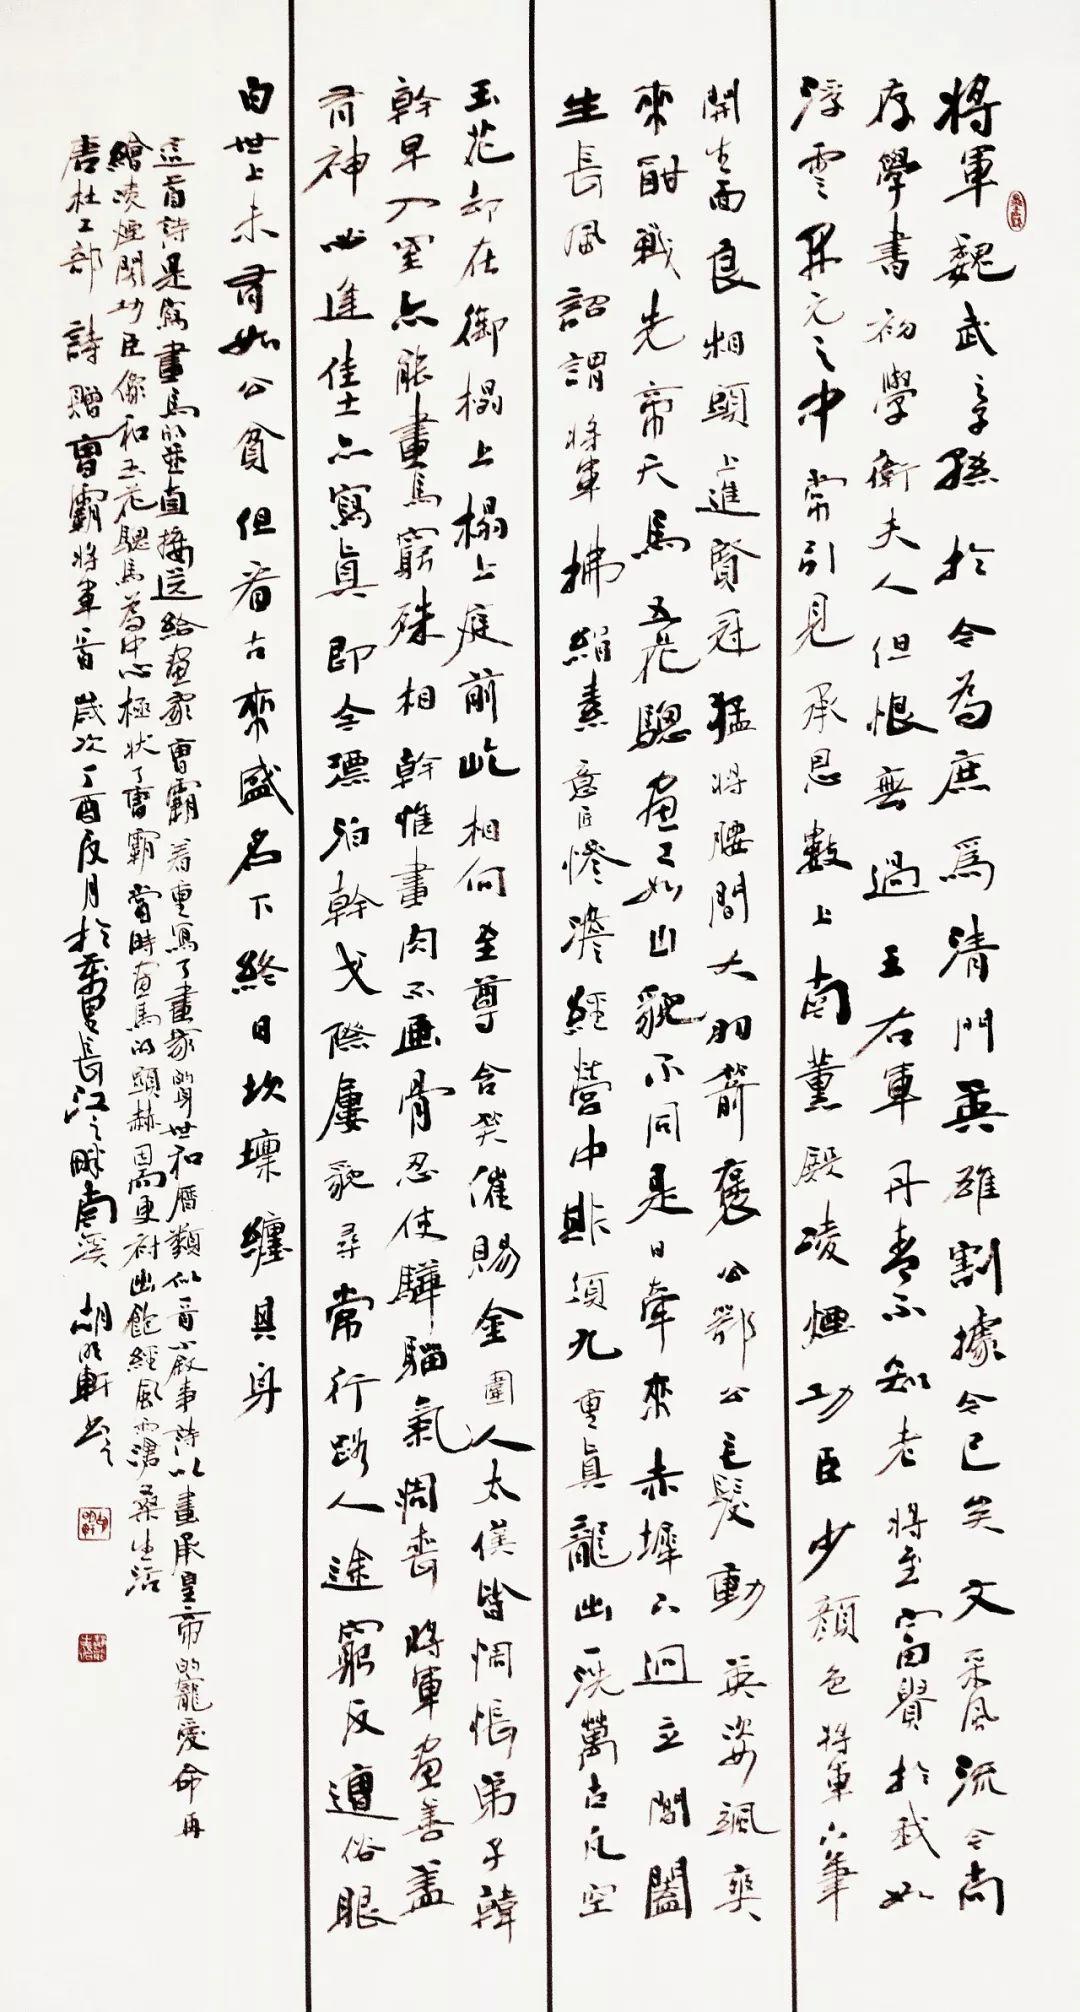 將軍魏武之子孫於今為庶為清門英雄割據今已矣文采風流今尚
存學書初學衛夫人但恨無過王右軍丹青不知老將至富貴於我如
浮雲開元之中常引見承恩數上南薰殿凌煙功臣少顏色將軍下筆
開生面良相頭上進賢冠猛將腰間大羽箭褒公鄂公毛髮動英姿颯爽
來酣戰先帝天馬五花驄畫工如山貌不同是日牽來赤墀下迥立閶闔
生長風詔謂將軍拂絹素意匠慘澹經營中斯須九重真龍出一洗萬古凡空
玉花却在御榻上榻上庭前屹相向至尊含笑催賜金圉人太僕皆惆悵弟子韓
幹早入室亦能畫馬窮殊相幹惟畫肉不画骨忍使驊騮氣凋喪將軍画善盖
有神必逢佳士亦寫真即今漂泊幹戈際屢貌尋常行路人途窮反遭俗眼
白世上未有如公貧但看古來盛名下終日坎壈纏其身
這首詩是寫畫馬的並直接送給画家曹霸着重寫了畫家的身世和曆類似一首小叙事詩以畫承皇帝的寵愛命再
繪凌煙閣功臣像和玉花驄馬為中心極狀了曹霸當時画馬的顯赫因而更襯出飽經風雨滄桑生活
唐杜工部詩贈曹霸將軍一首歲次丁酉
月於萬里長江之畔南溪胡
軒書